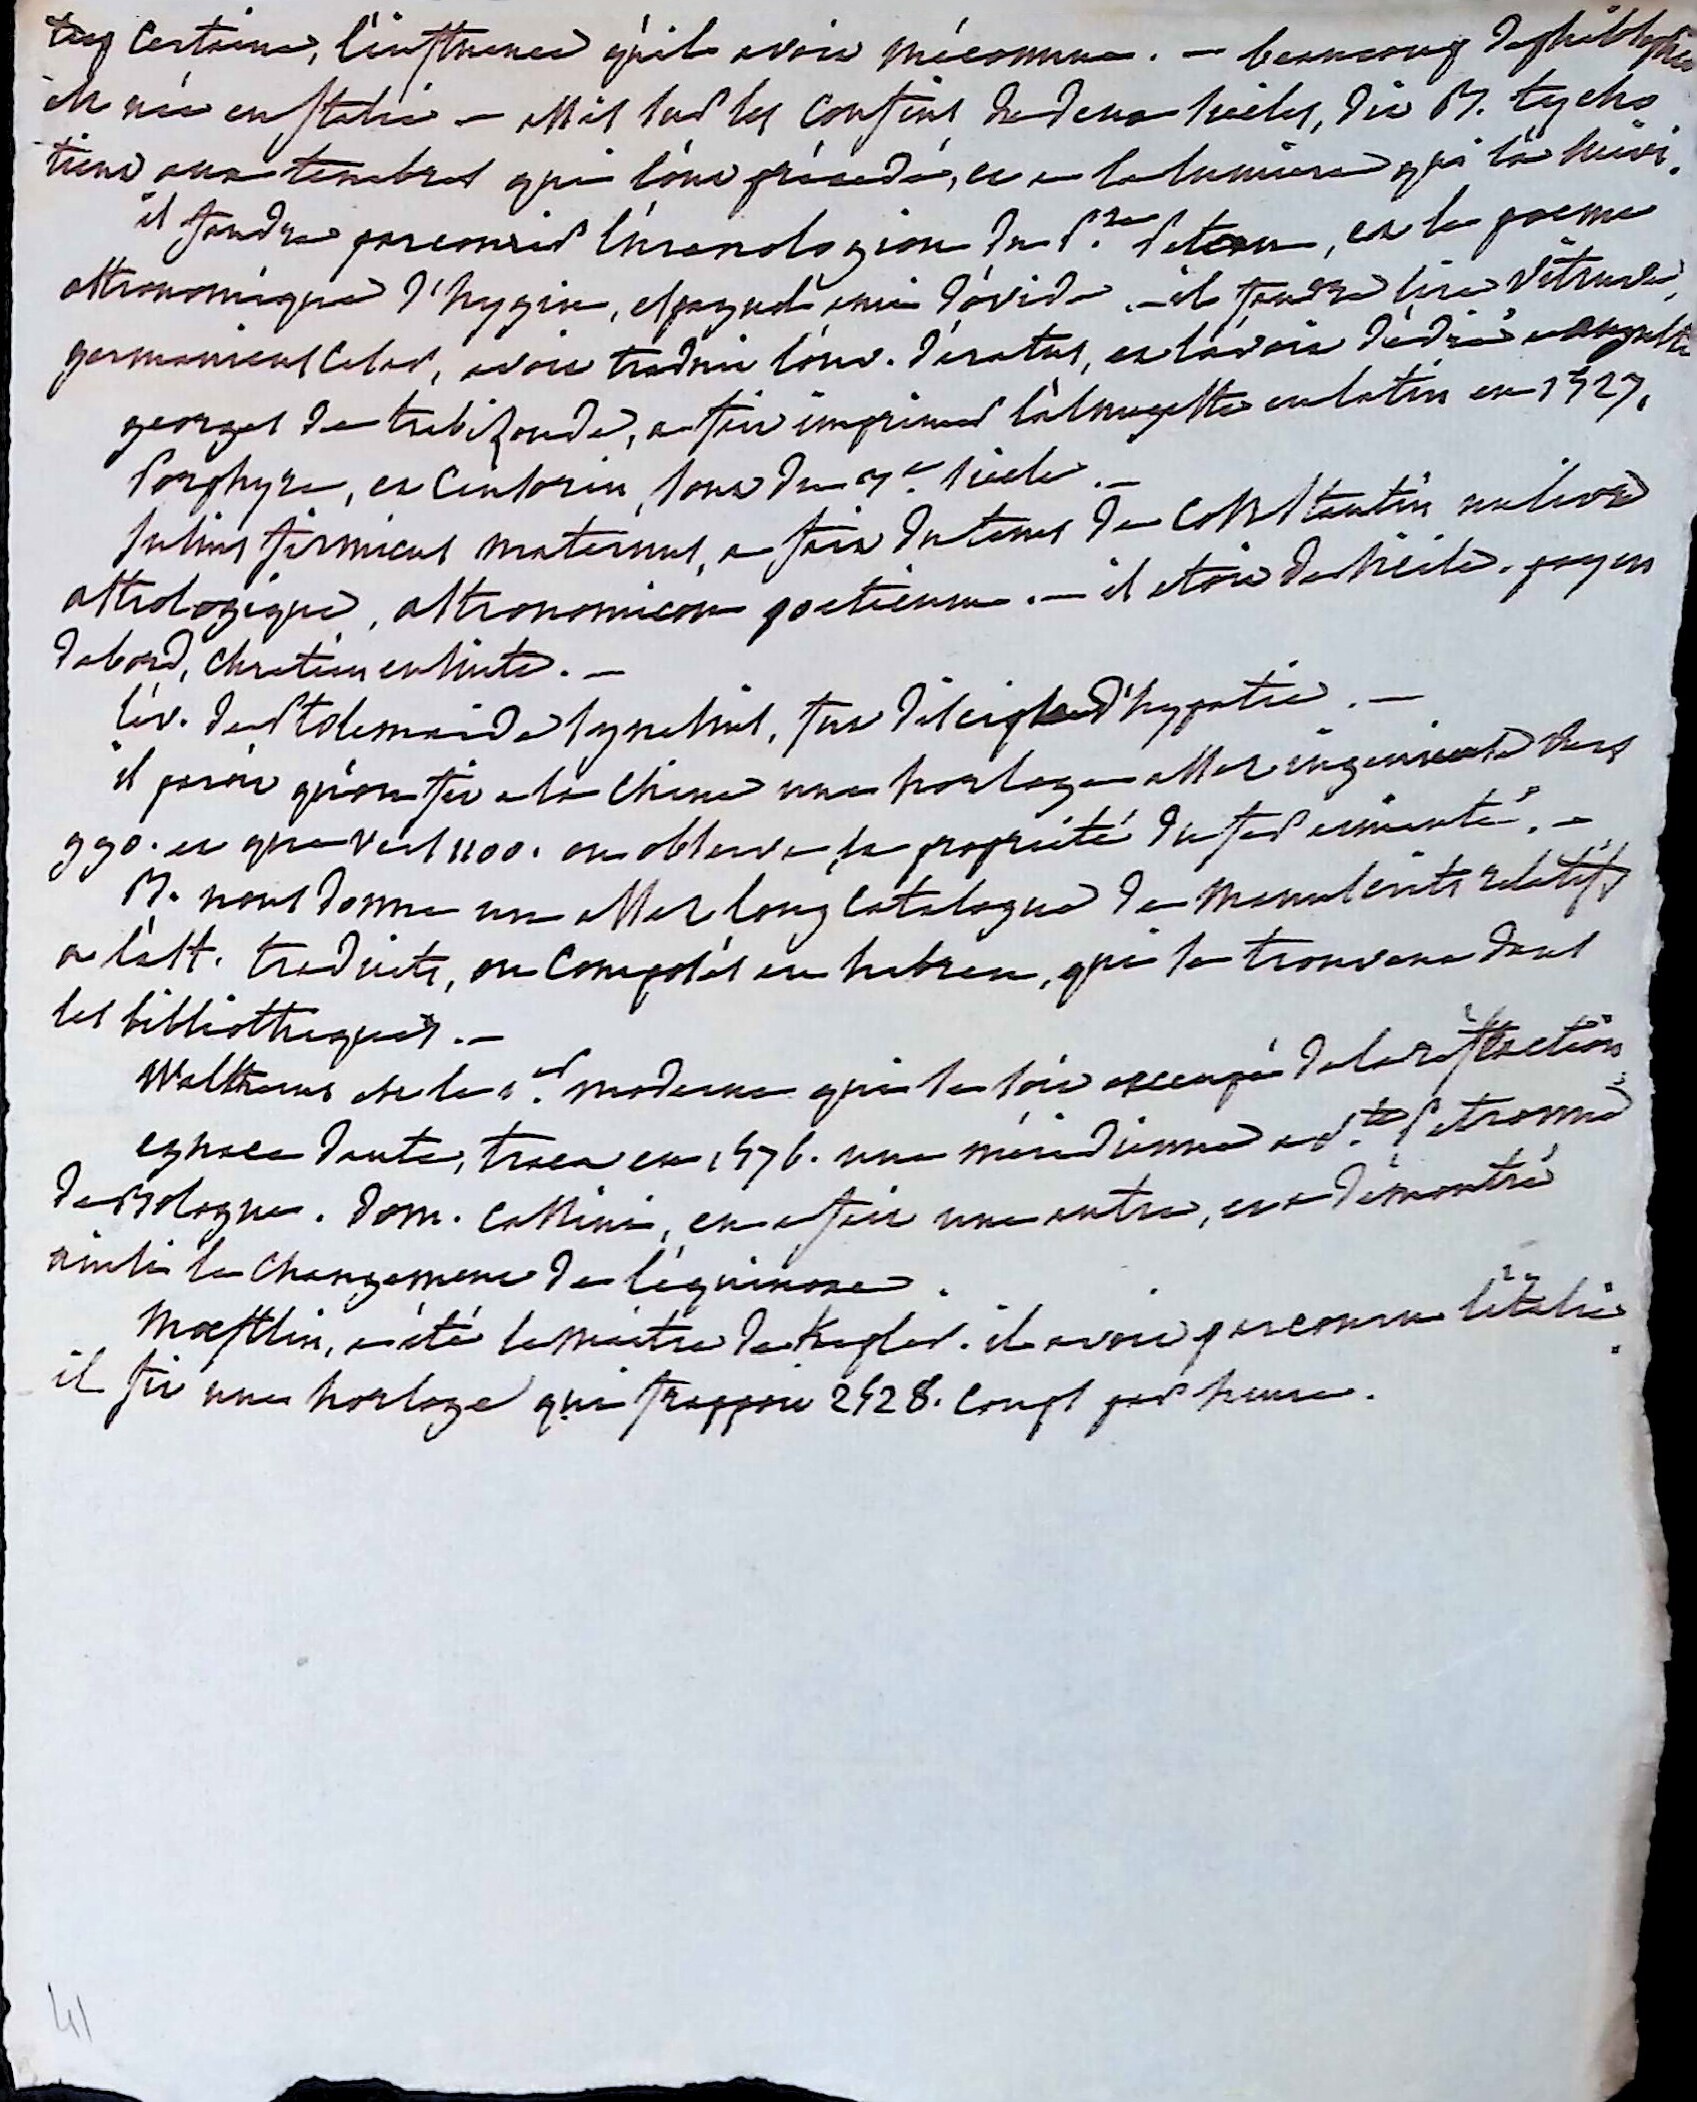 trop certaine, l'influence qu'il avoit méconnue. — beaucoup de philosophie
est née en Italie — assis sur les confins de deux siècles, dit B. tycho
tient aux tenebres qui l'ont précédé, et a la lumiere qui l'a suivi.
il faudra parcourir l'uranologion du P. Petau, et le poeme
astronomique d'hygin, espagnol ami d'ovide. — il faudra lire Vitruve,
germanicus Cesar, avoit traduit l'ouv. d'aratus, et l'avoit dédié a auguste
georges de trebizonde, a fait imprimer l'almageste en latin en 1527.
Porphyre, et Censorin, sont du 3e. siecle. —
Julius firmicus maternus, a fait du tems de Constantin un livre
astrologique, astronomicon poeticum. — il etoit de sicile. payen
dabord, chretien ensuite. —
l'ev. de Ptolemaide Synesius, fut disciple d'hypatie. —
il paroit qu'on fit a la chine une horloge assez ingenieuse vers
990. et que vers 1100. on observa la propriété du fer aimanté. —
B. nous donne un assez long catalogue de manuscrits relatifs
a l'ast. traduits, ou composés en hebreu, qui se trouvent dans
les bibliotheques. —
Waltherus est le 1er. moderne qui se soit occupé de la réfraction
egnace dante, traca en 1576. une méridienne a Ste. Petronne
de Bologne. dom. cassini, en a fait une autre, et a démontré
ainsi le changement de l'équinoxe.
Moestlin, a été le maitre de Kepler. il avoit parcouru l'italie.
il fit une horloge qui frappoit 2528. coups par heure.
41